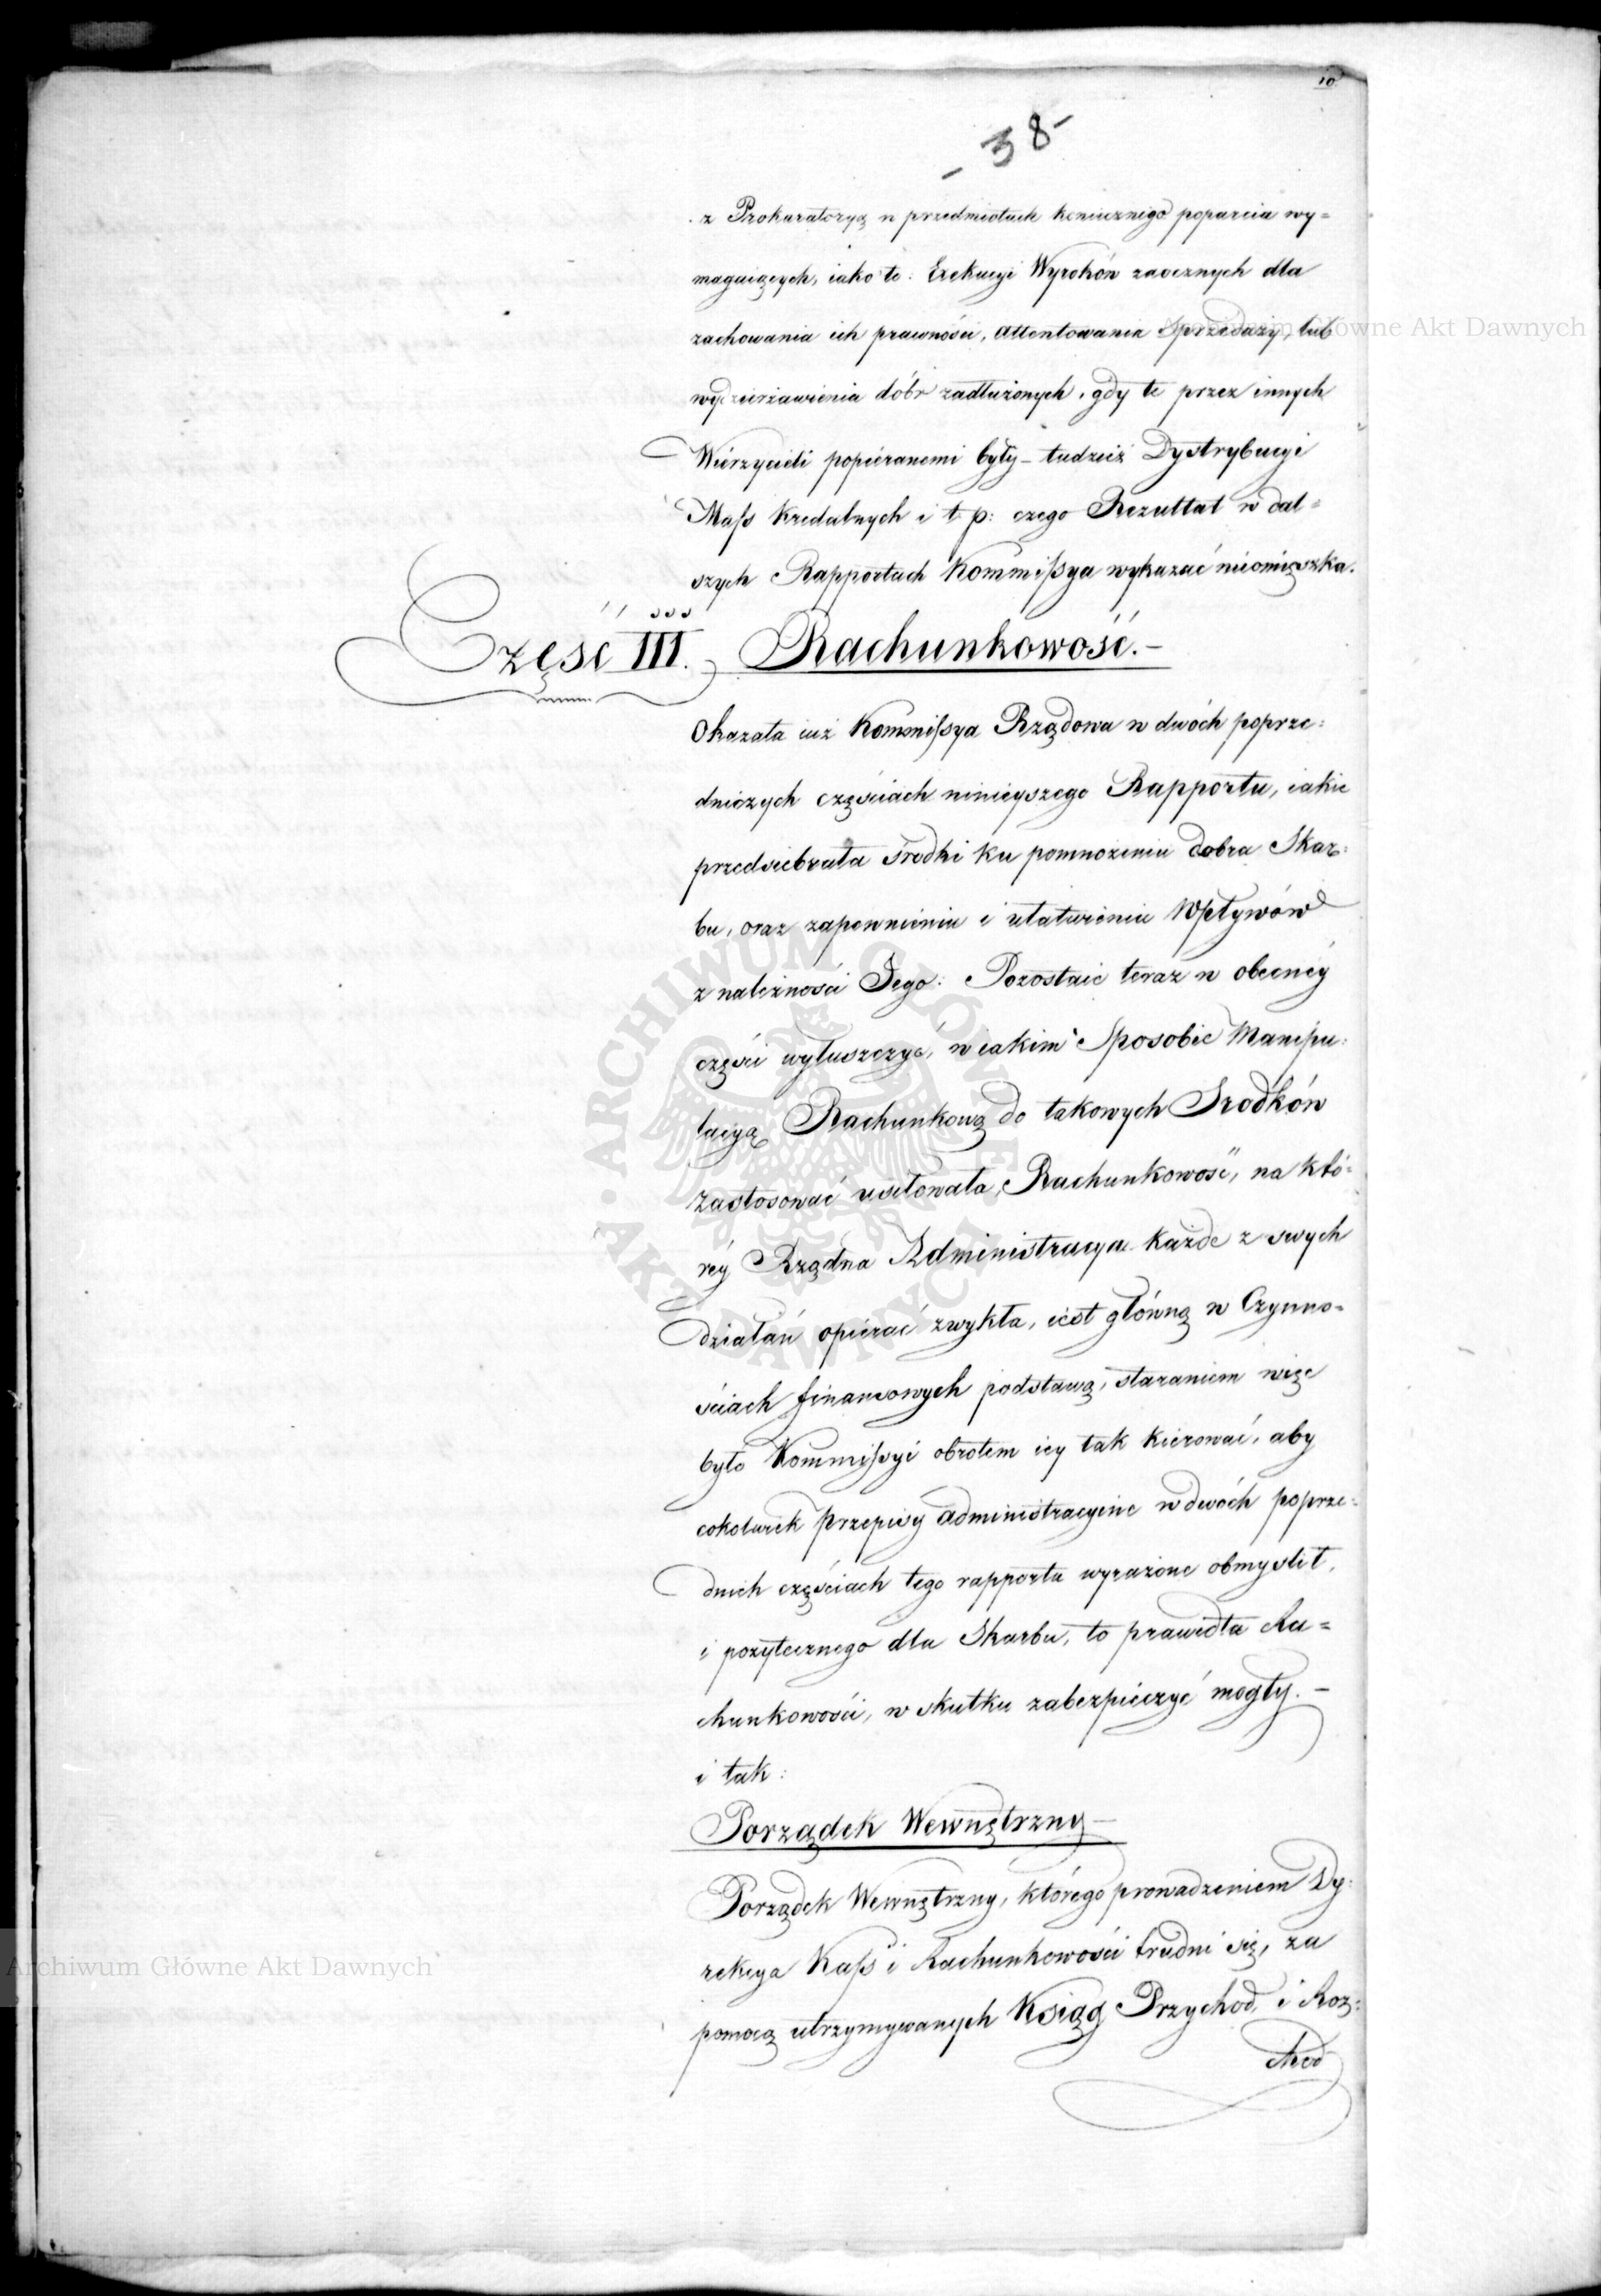 10
- 38 -
z Prokuratoryą w przedmiotach koniecznego poparcia wy=
magaiących, iako to: Exekucyi Wyroków zaocznych dla
zachowania ich prawności, attentowania Sprzedaży, lub
wydzierżawienia dóbr zadłużonych, gdy te przez innych
Wierzycieli popieranemi były – tudzież Dystrybucyi
Mass kredalnych i t. p: czego Rezultat w dal=
szych Rapportach Kommissya wykazać nieomieszka.
Część III. Rachunkowość. –
Okazała iuż Kommissya Rządowa w dwóch poprze:
dniczych częściach ninieyszego Rapportu, iakie
przedsiebrała środki ku pomnożeniu dobra Skar:
bu, oraz zapewnieniu i ułatwieniu Wpływów
z należności Jego: Pozostaie teraz w obecnéy
części wyłuszczyć, w iakim Sposobie Manipu:
lacyą Rachunkową do takowych Srodków
zastosować usiłowała, Rachunkowość, na któ:
réy Rządna Administracya każde z swych
działań opierać zwykła, iest główną w Czynno=
ściach finansowych podstawą, staraniem więc
było Kommissyi obrotem iey tak kierować, aby
cokolwiek przepisy administracyine w dwóch poprze:
dnich częściach tego rapportu wyrażone obmyslił,
i pożytecznego dla Skarbu, to prawidła Ra=
chunkowości, w skutku zabezpieczyć mogły. –
i tak:
Porządek Wewnętrzny –
Porządek Wewnętrzny, którego prowadzeniem Dy:
rekcya Kass i Rachunkowości trudni się, za
pomocą utrzymywanych Ksiąg Przychod. i Roz:
chod
Archiwum Główne Akt Dawnych
Archiwum Główne Akt Dawnych
ARCHIWUM GŁÓWNE AKT DAWNYCH